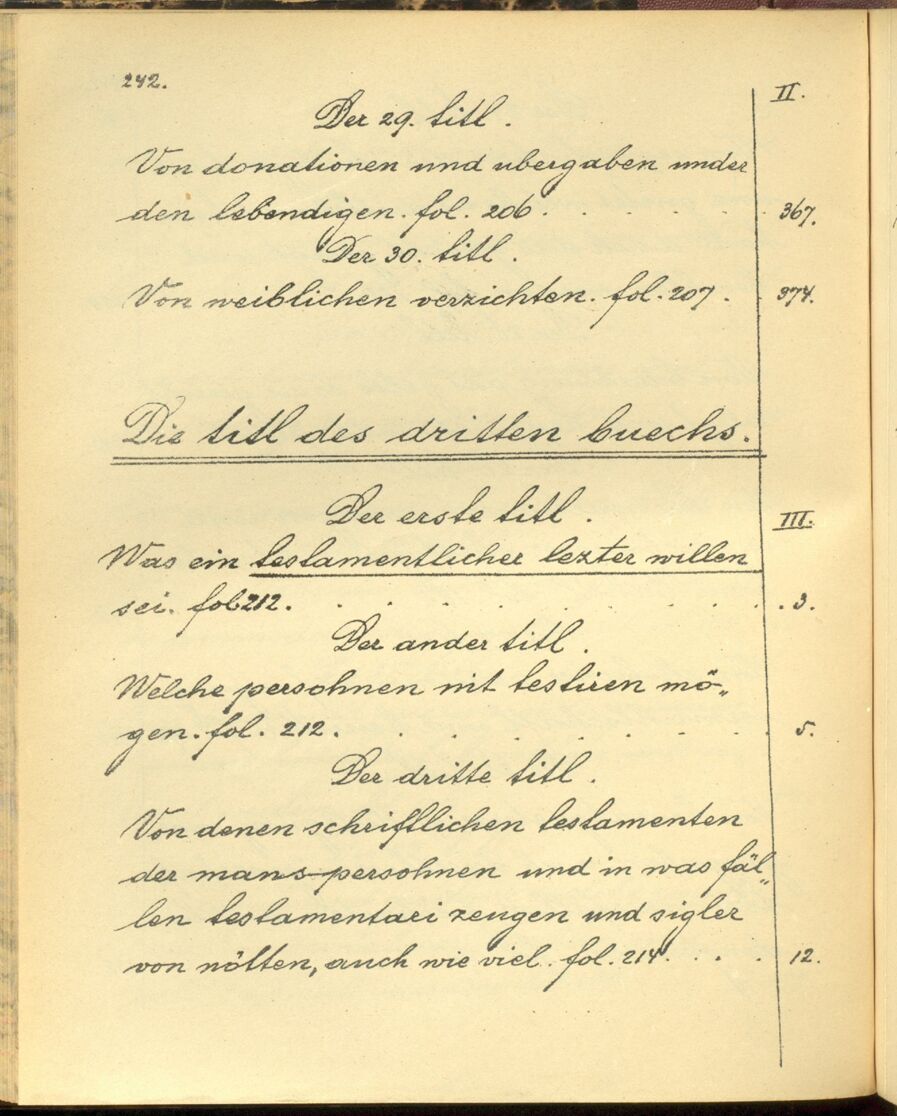 242.
II.
Der 29. titl.
Von donationen und ubergaben under
den lebendigen. fol. 206. . . . . . 367.
Der 30. titl.
Von weiblichen verzichten. fol. 207. . 374.
Die titl des dritten buechs.
Der erste titl.
III.
Was ein testamentlicher lezter willen
sei. fol 212. . . . . . . . . . . 3.
Der ander titl.
Welche persohnen nit testiren mö„
gen. fol. 212. . . . . . . . . 5.
Der dritte titl.
Von denen schriftlichen testamenten
der mans-persohnen und in was fäl„
len testamentari zeugen und sigler
von nötten, auch wie viel. fol. 214. . . . 12.